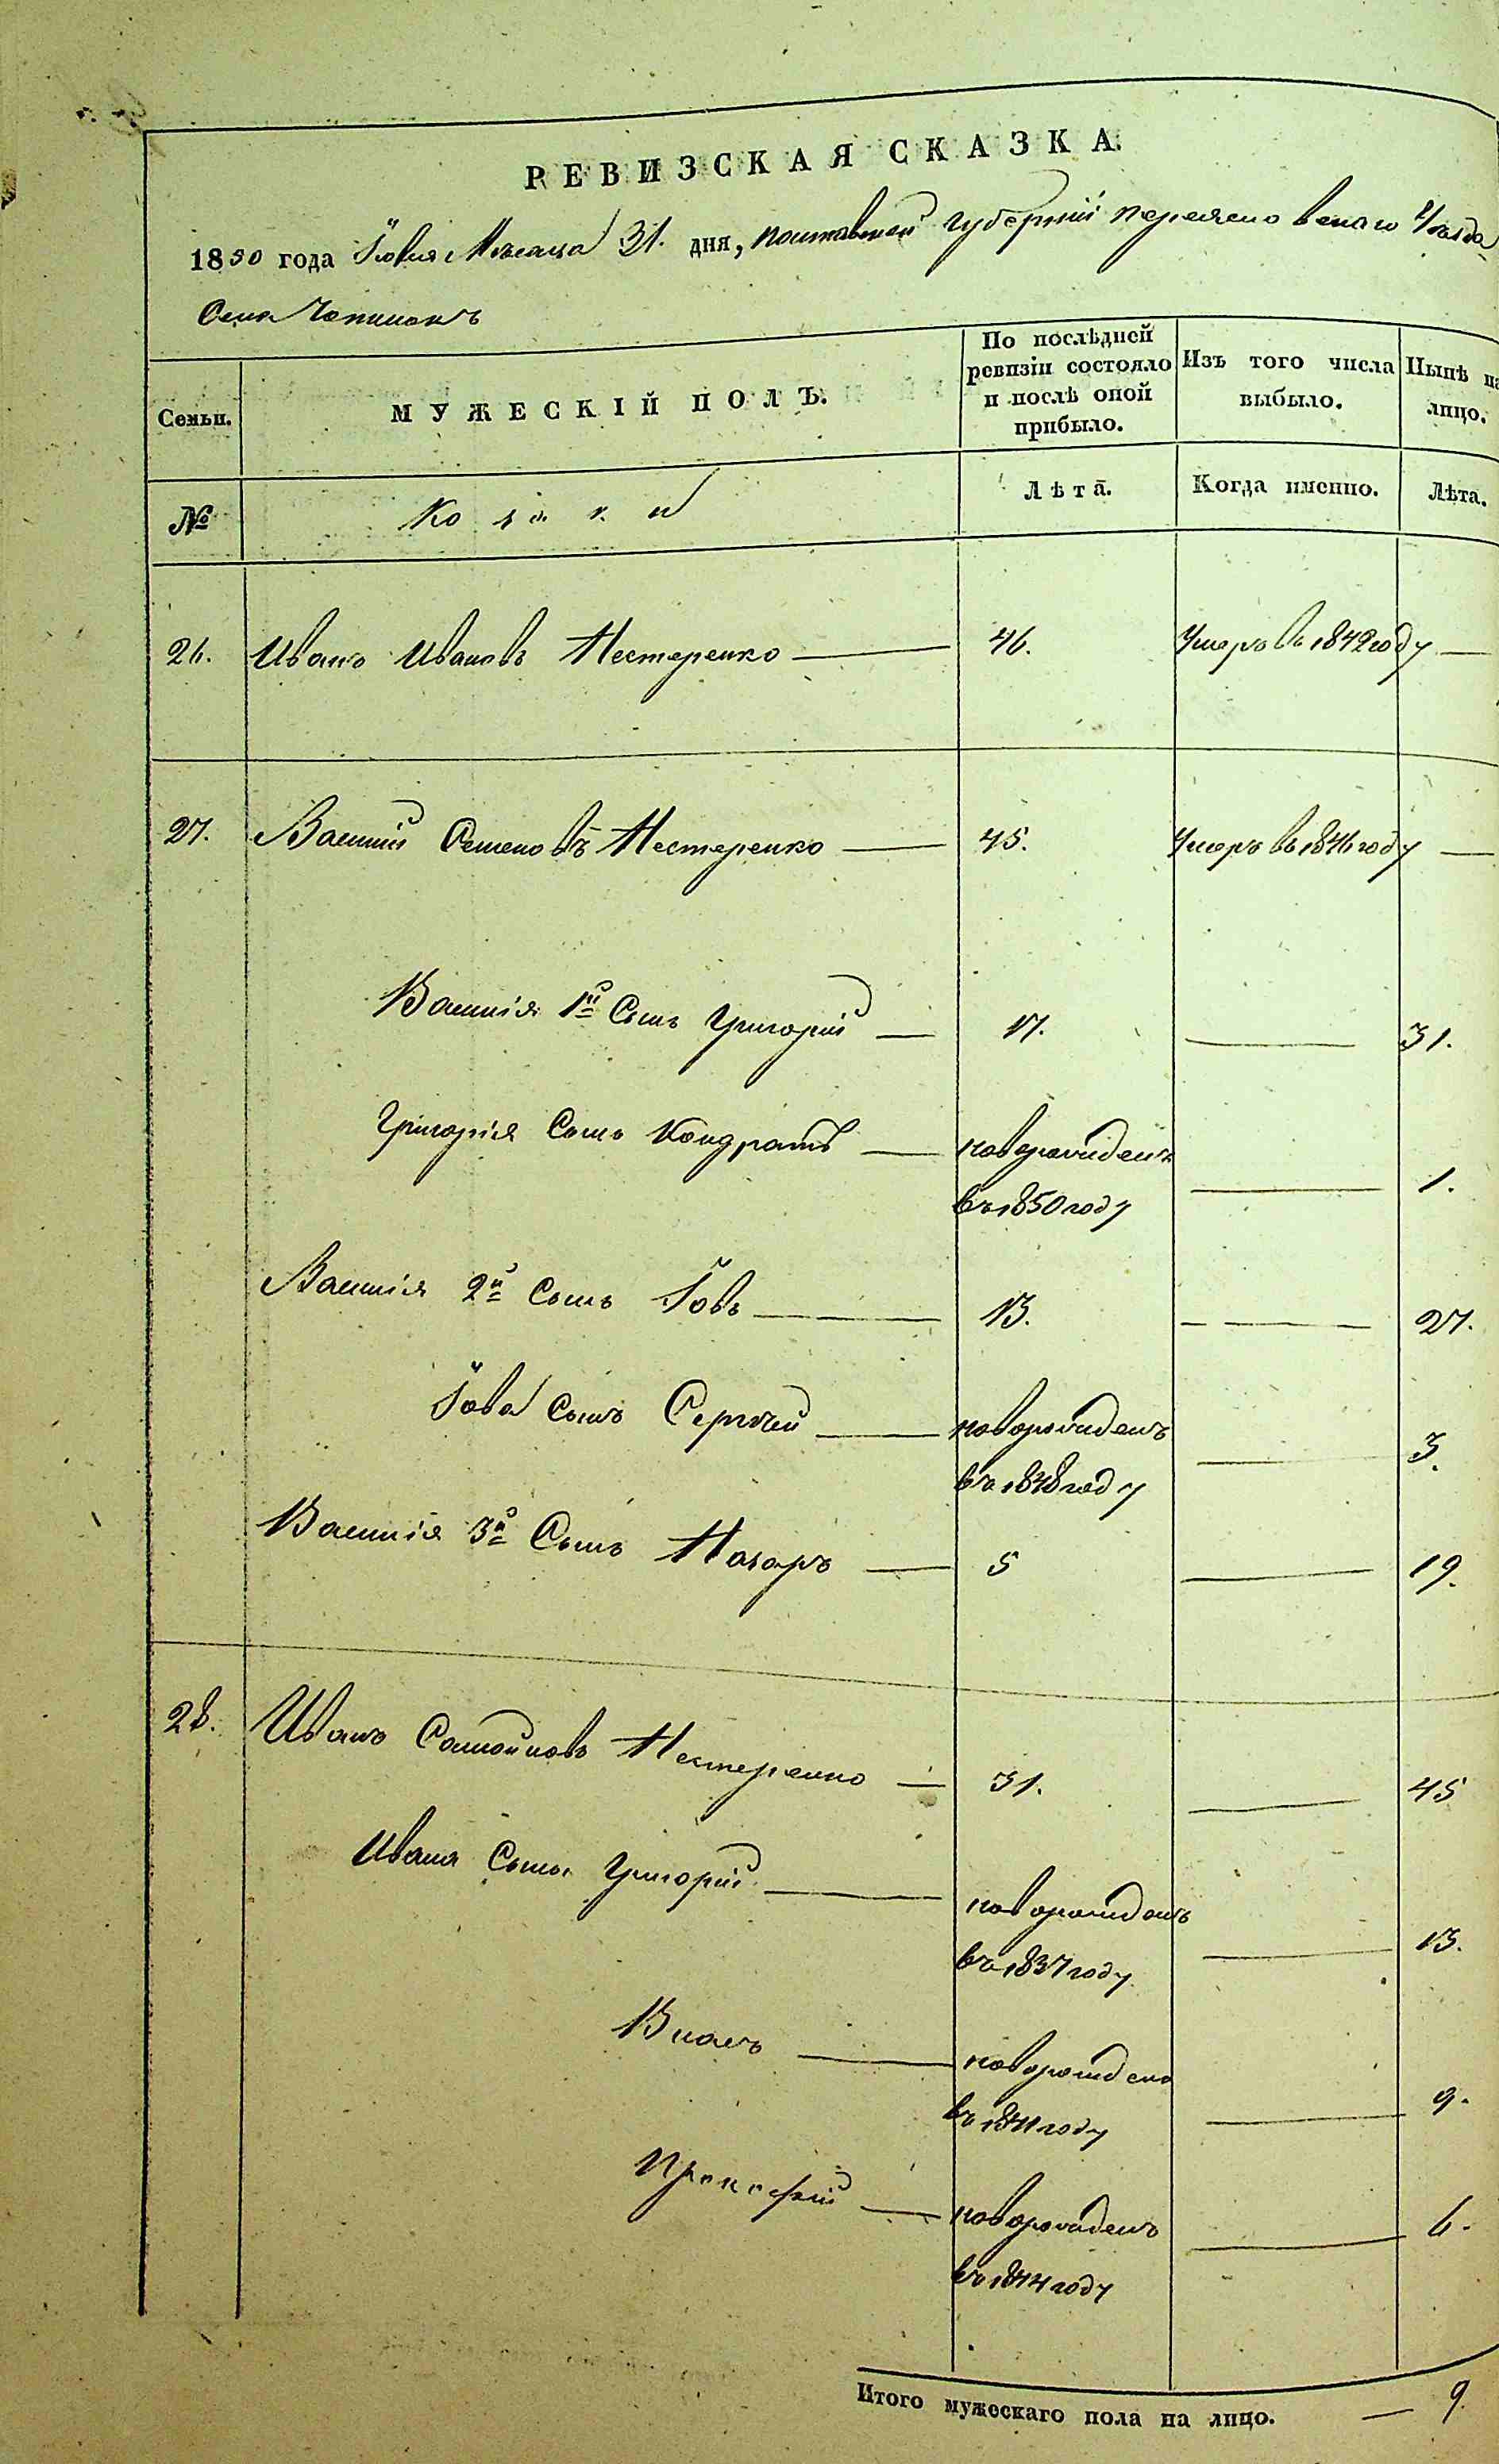 РЕВИЗСКАЯ СКАЗКА.
1850 года Іюля Мѣсяца 31. дня, Полтавской губерніи Переяславскаго уѣзда
Села
Семьи.
МУЖЕСКІЙ ПОЛЪ.
По послѣдней ревизіи состояло и послѣ оной прибыло.
Изъ того числа выбыло.
Нынѣ на лицо.
№
Козаки
Лѣта.
Когда именно.
Лѣта.
26. Иванъ Ивановъ Нестеренко — 46. Умеръ въ 1842 году —
27. Василій Семеновъ Нестеренко — 45. Умеръ въ 1846 году —
Василія 1й Сынъ Григорій — 17. — 31.
Григорія Сынъ Кондратъ — новорожденъ
въ 1850 году — 1.
Василія 2й Сынъ Іовъ — 13. — 27.
Іова Сынъ Сергѣй — новорожденъ
въ 1848 году — 3.
Василія 3й Сынъ Назаръ — 5 — 19.
28. Иванъ Самойловъ Нестеренко — 31. — 45
Ивана Сынъ Григорій — новорожденъ
въ 1837 году — 13.
Власъ — новорожденъ
въ 1841 году — 9.
Прокофій — новорожденъ
въ 1844 году — 6.
Итого мужескаго пола на лицо. — 9